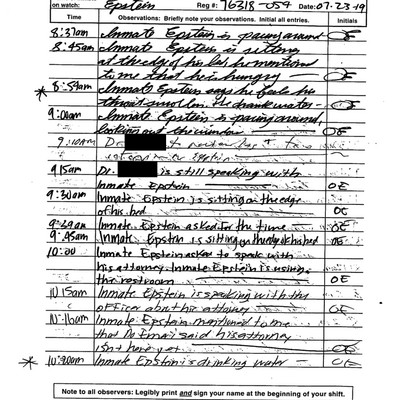 on watch: Epstein Reg #: 76318-054 Date: 07-23-19
Time Observations: Briefly note your observations. Initial all entries. Initials
8:37am Inmate Epstein is pacing around OE
8:45am Inmate Epstein is sitting
at the edge of his bed he mentioned
time that he is hungry OE
* 8:59am Inmate Epstein says he feels his
throat swollen. He drank water OE
9:00am Inmate Epstein is pacing around,
looking out the window OE
9:10am Dr.
Epstein
915am Dr. is still speaking with
Inmate Epstein OE
9:30am Inmate Epstein is sitting on the edge
of his bed OE
9:39am Inmate Epstein asked for the time OE
9:45am Inmate Epstein is sitting on the edge of his bed OE
10:00 Inmate Epstein asked to speak with
his attorney. Inmate Epstein is using
the restroom OE
10:15am Inmate Epstein is speaking with the
officer about his attorney OE
10:16am Inmate Epstein mentioned to me
that said his attorney
isn't here yet OE
* 10:20am Inmate Epstein is drinking water OE
Note to all observers: Legibly print and sign your name at the beginning of your shift.